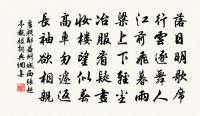 落日明歌席
行雲逐舞人
江前飛暮雨
梁上下輕塵
冶服看疑畫
妝樓望似春
高車勿遽返
長袖欲相親
益州城西張超
亭觀妓